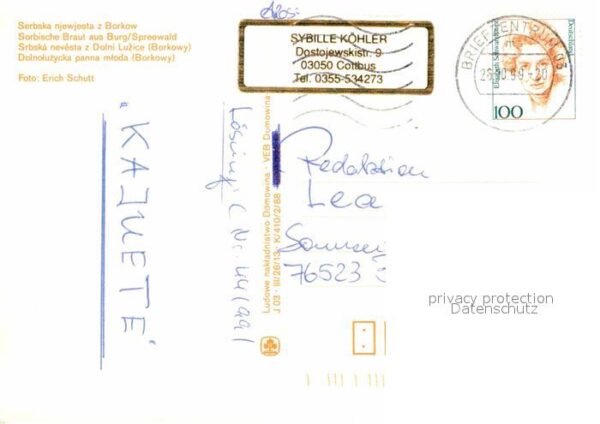 Serbska njewjesta z Borkow
Sorbische Braut aus Burg/Spreewald
Srbská nevěsta z Dolní Lužice (Borkowy)
Dolnołużycka panna młoda (Borkowy)
Foto: Erich Schutt
"KAJUETE"
Lösung: ( Nr. 44/99)
Ludowe nakładnistwo Domowina · VEB Domowina
J 03 · III/26/13 · K/410/2/88
Abs:
SYBILLE KÖHLER
Dostojewskistr. 9
03050 Cottbus
Tel. 0355-534273
BRIEFZENTRUM 03
Elisabeth Schwarzhaupt
Deutschland
100
Redaktion
Lea
76523
privacy protection
Datenschutz